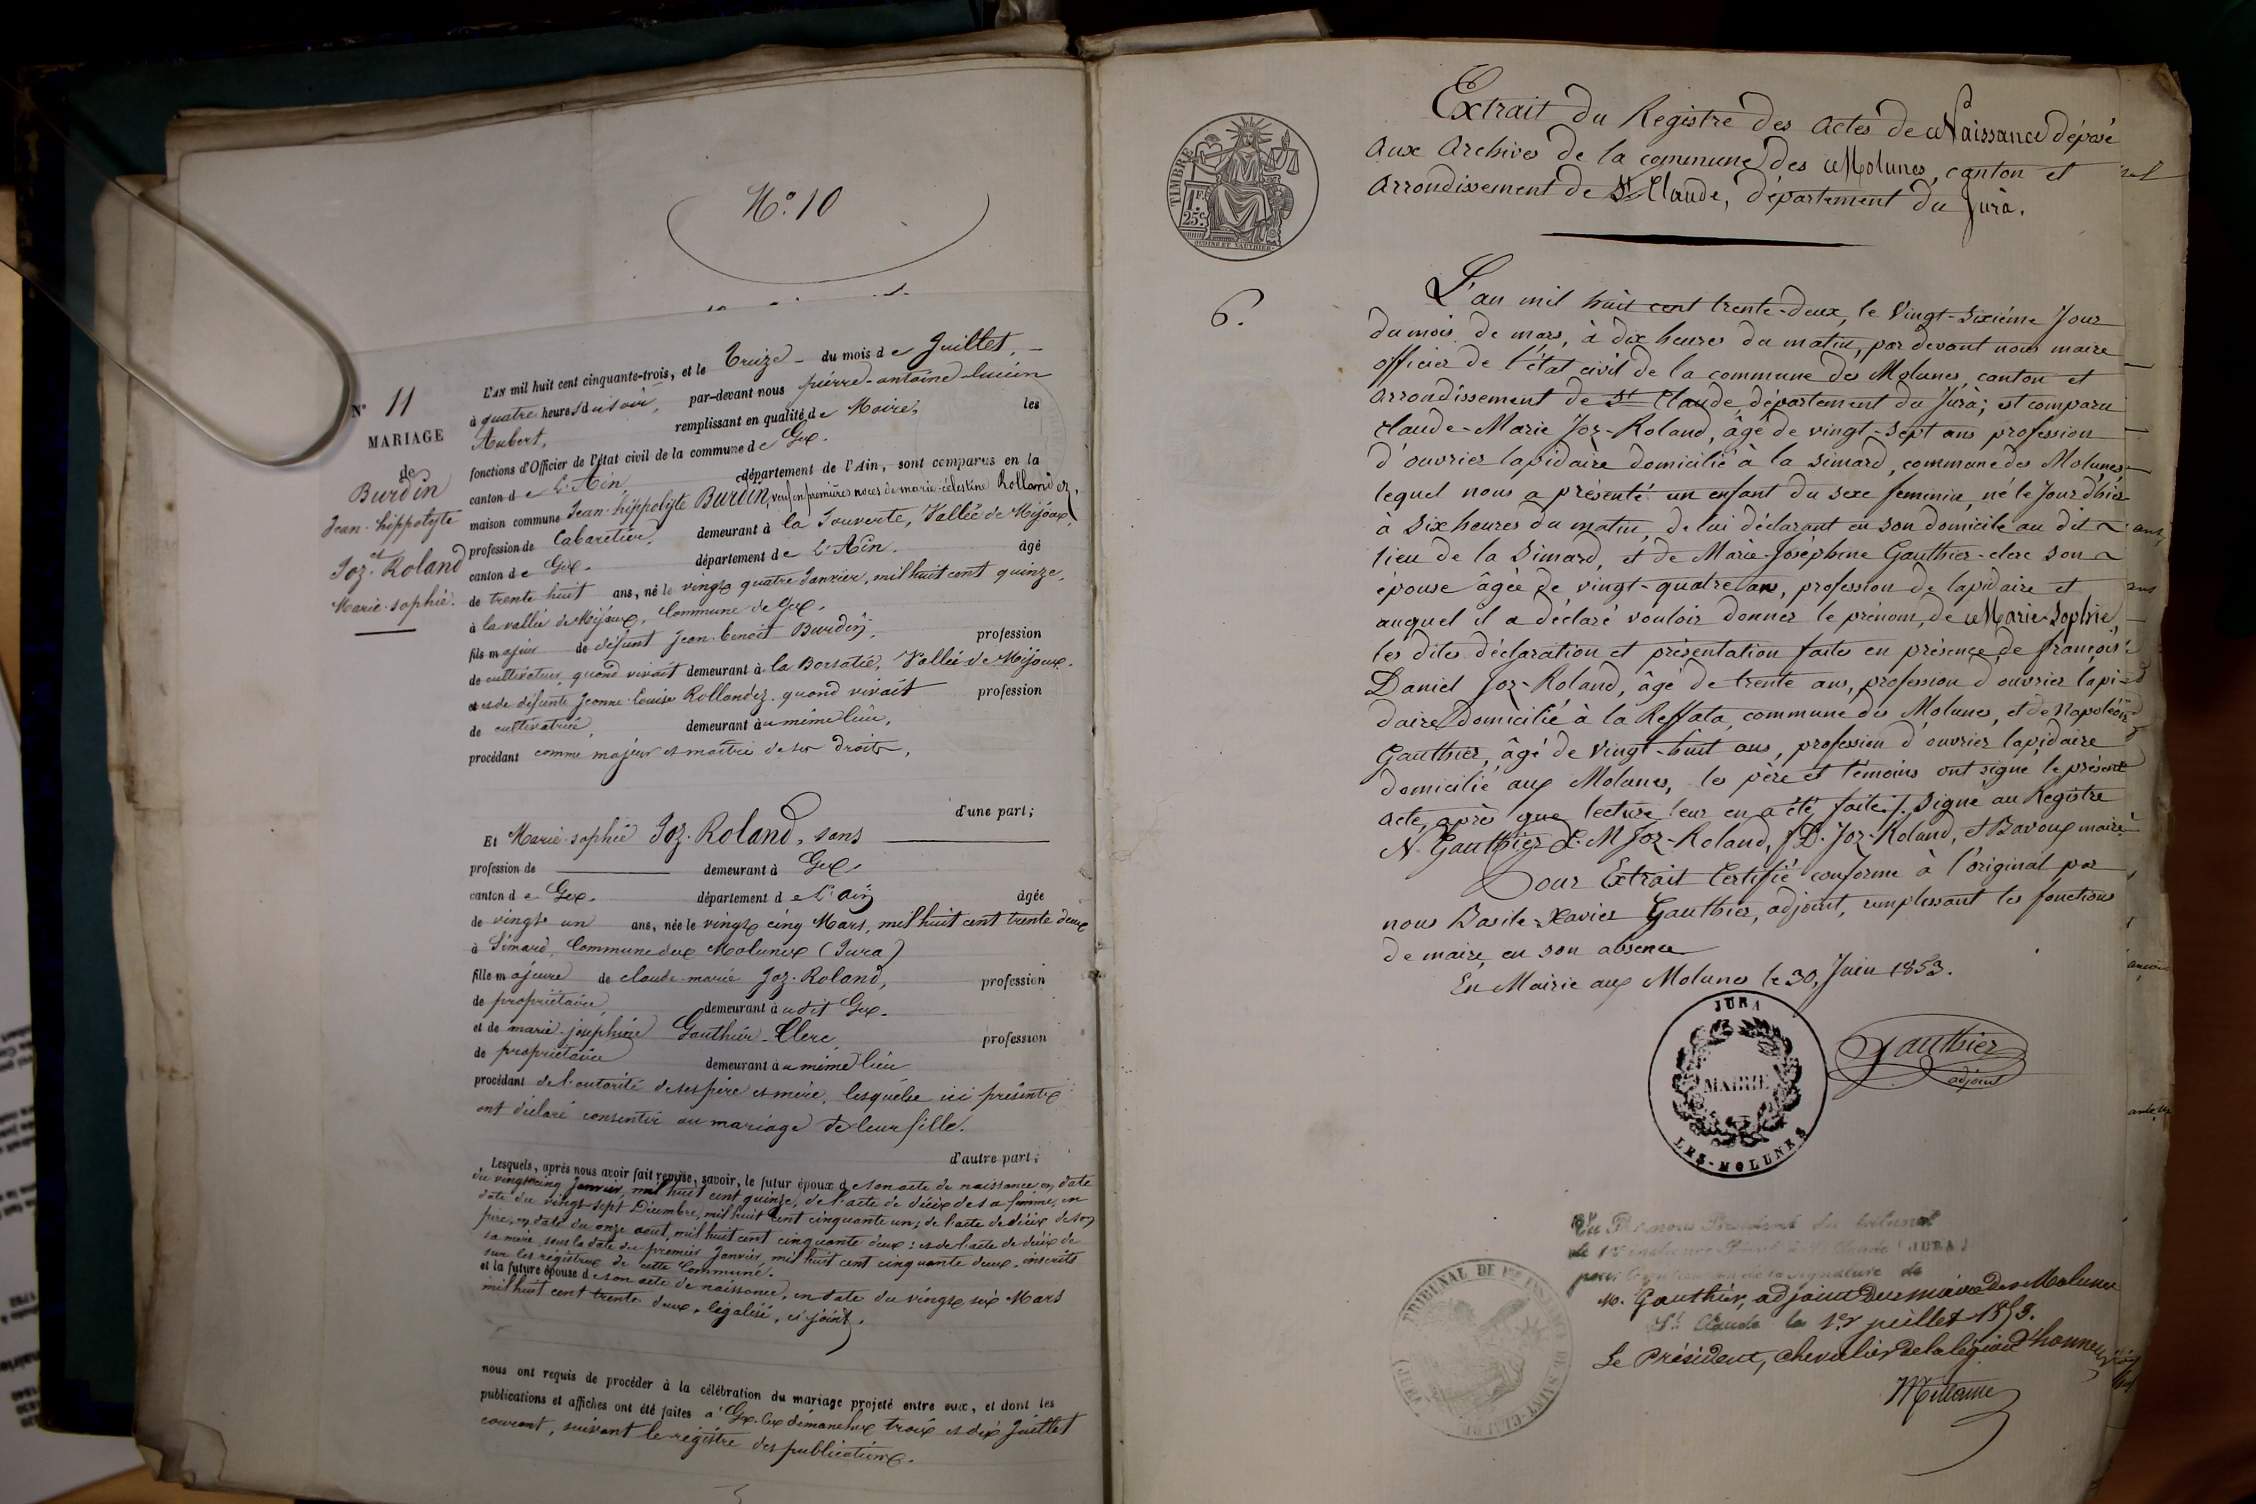 N.º 10
N° 11
MARIAGE
de
Burdin
Jean-hippolyte
et
Joz-Roland
Marie-sophie.
L'AN mil huit cent cinquante-trois, et le Treize - du mois de Juillet, -
à quatre heures du soir, par-devant nous pierre-antoine-lucien
Aubert, remplissant en qualité de Maire, les
fonctions d'Officier de l'état civil de la commune de Gex.
canton de L'Ain, département de l'Ain, sont comparus en la
maison commune Jean-hippolyte Burdin, veuf en premières noces de marie-célestine Rollandez,
profession de Cabaretier, demeurant à la Souverte, Vallée de Mijoux,
canton de Gex. département de L'Ain. âgé
de trente huit ans, né le vingt quatre Janvier, mil huit cent quinze,
à la vallée de Mijoux, Commune de Gex.
fils majeur de défunt Jean-benoit Burdin, profession
de cultivateur, quand vivait demeurant à la Borsatie, Vallée de Mijoux.
et de défunte Jeanne-Louise Rollandez, quand vivait profession
de cultivatrice, demeurant au même lieu,
procédant comme majeur et maitre de ses droits,
d'une part;
Et Marie-sophie Joz-Roland, sans
profession de demeurant à Gex,
canton de Gex. département de L'ain âgée
de vingt un ans, née le vingt cinq Mars, mil huit cent trente deux
à Simard, Commune des Molunes (Jura)
fille majeure de claude-marie Joz-Roland, profession
de propriétaire, demeurant audit Gex.
et de marie-josephine Gauthier-Clerc, profession
de propriétaire demeurant au même lieu
procédant de l'autorité de ses père et mère, lesquels ici présents
ont déclaré consentir au mariage de leur fille.
d'autre part;
Lesquels, après nous avoir fait remise, savoir, le futur époux de son acte de naissance en date
du vingt cinq Janvier, mil huit cent quinze, de l'acte de décès de sa femme, en
date du vingt-sept Décembre, mil huit cent cinquante un; de l'acte de décès de son
père, en date du onze août, mil huit cent cinquante deux; et de l'acte de décès de
sa mère, sous la date du premier Janvier, mil huit cent cinquante deux, inscrits
sur les registres de cette Commune.
et la future épouse de son acte de naissance, en date du vingt six Mars
mil huit cent trente deux, légalisé, ci-joint,
nous ont requis de procéder à la célébration du mariage projeté entre eux, et dont les
publications et affiches ont été faites à Gex, les dimanches trois et dix Juillet
courant, suivant le registre des publications.
TIMBRE
1F.
25c.
Extrait du Registre des actes de Naissance déposé
aux Archives de la commune des Molunes, canton et
Arrondissement de St Claude, département du Jura.
6.
L'an mil huit cent trente-deux, le Vingt-Sixième Jour
du mois de mars, à dix heures du matin, par devant nous maire
officier de l'état civil de la commune des Molunes, canton et
arrondissement de St Claude, département du Jura; est comparu
claude-Marie Joz-Roland, âgé de vingt-sept ans profession
d'ouvrier lapidaire domicilié à la Simard, commune des Molunes,
lequel nous a présenté un enfant du sexe feminin, né le Jour d'hier
à Six heures du matin, de lui déclarant en son domicile au dit
lieu de la Simard, et de Marie-Joséphine Gauthier-clerc son
épouse âgée de vingt-quatre ans, profession de lapidaire et
auquel il a déclaré vouloir donner le prénom, de Marie-Sophie,
les dites déclaration et présentation faites en présence de françois
Daniel Joz-Roland, âgé de trente ans, profession d'ouvrier lapi-
daire domicilié à la Reffata, commune des Molunes, et de Napoléon
Gauthier, âgé de vingt-huit ans, profession d'ouvrier lapidaire
domicilié aux Molunes, les père et témoins ont signé le présent
acte, après que lecture leur en a été faite. Signé au Registre
N. Gauthier C. M Joz-Roland, f D. Joz-Roland, et Bavoux maire.
Pour Extrait Certifié conforme à l'original par
nous Basile-Xavier Gauthier, adjoint, remplissant les fonctions
de maire en son absence
En Mairie aux Molunes le 30, Juin 1853.
JURA
MAIRIE
LES-MOLUNES
Gauthier
adjoint
Vu Par nous Président du tribunal
de 1re instance séant à St Claude (JURA)
pour légalisation de la signature de
M. Gauthier, adjoint du maire des Molunes
St. Claude le 1er juillet 1853.
Le Président, chevalier de la légion d'honneur
TRIBUNAL DE 1re INSTANCE DE SAINT-CLAUDE (JURA)